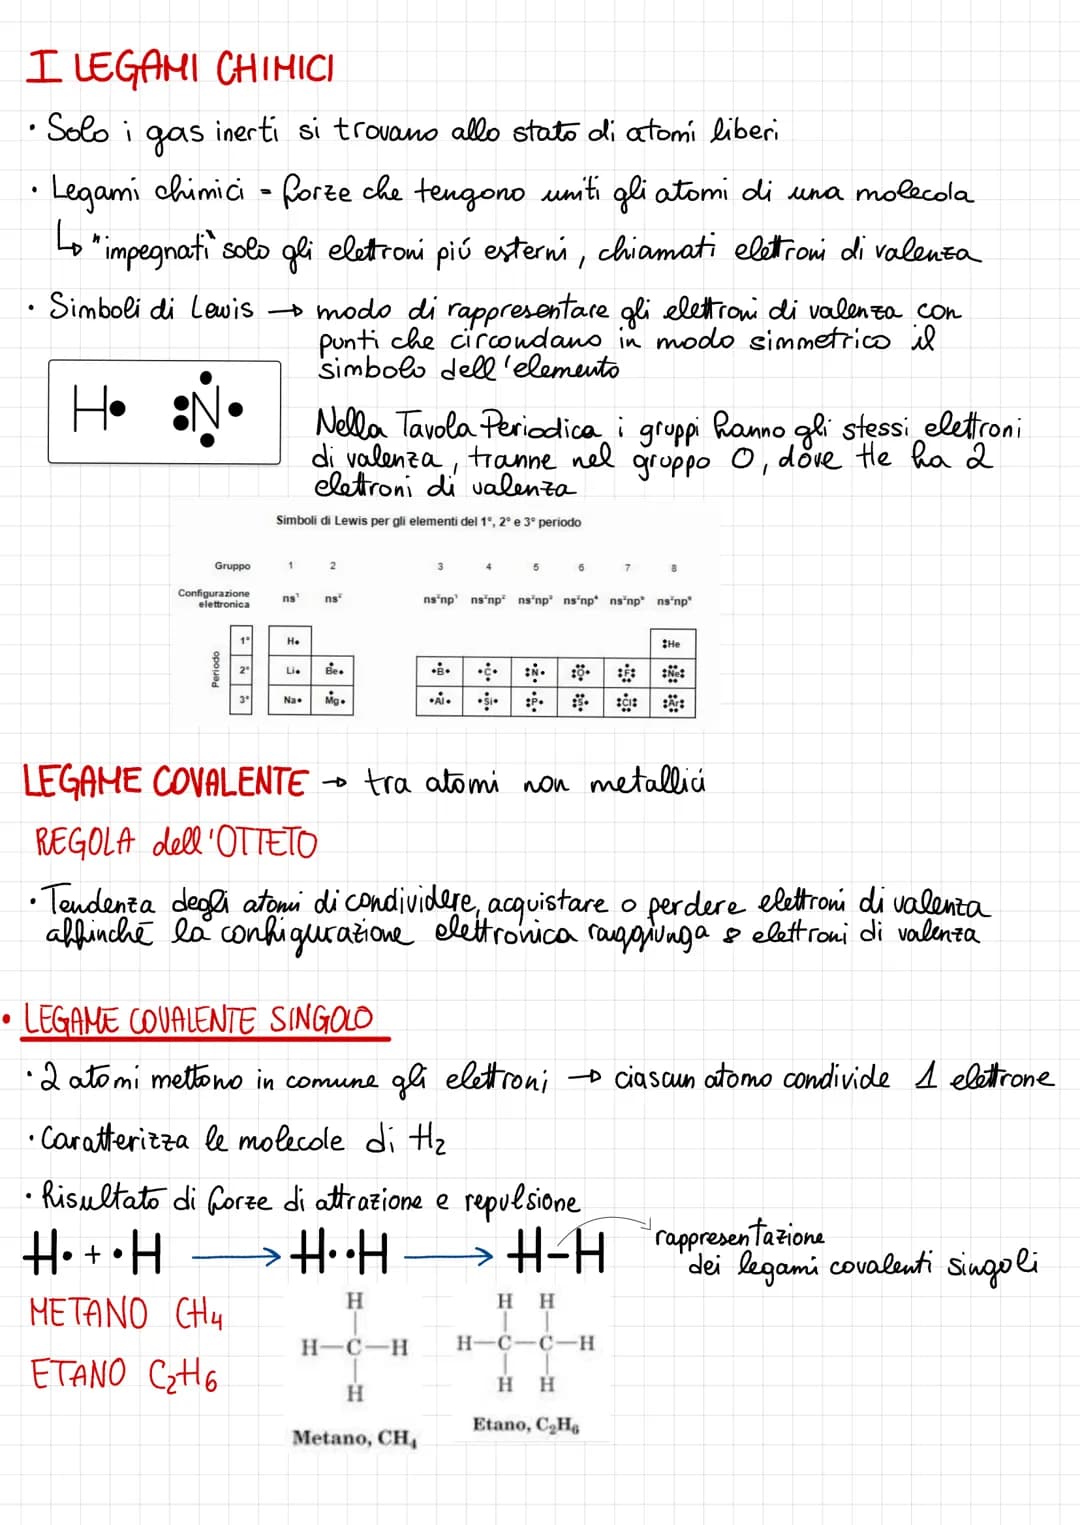 I LEGAMI CHIMICI
• Solo i gas inerti si trovano allo stato di atomi liberi
• Legami chimici = forze che tengono uniti gli atomi di una molecola
↳ "impegnati" solo gli elettroni più esterni, chiamati elettroni di valenza
• Simboli di Lewis → modo di rappresentare gli elettroni di valenza con
punti che circondano in modo simmetrico il
simbolo dell'elemento
H• :N•
Nella Tavola Periodica i gruppi hanno gli stessi elettroni
di valenza, tranne nel gruppo 0, dove He ha 2
elettroni di valenza
Simboli di Lewis per gli elementi del 1°, 2° e 3° periodo
Gruppo 1 2 3 4 5 6 7 8
Configurazione elettronica ns¹ ns² ns²np¹ ns²np² ns²np³ ns²np⁴ ns²np⁵ ns²np⁶
Periodo
1° H He
2° Li Be B C N O F Ne
3° Na Mg Al Si P S Cl Ar
LEGAME COVALENTE → tra atomi non metallici
REGOLA dell'OTTETO
• Tendenza degli atomi di condividere, acquistare o perdere elettroni di valenza
affinchè la configurazione elettronica raggiunga 8 elettroni di valenza
• LEGAME COVALENTE SINGOLO
• 2 atomi mettono in comune gli elettroni → ciascun atomo condivide 1 elettrone
• Caratterizza le molecole di H₂
• Risultato di forze di attrazione e repulsione
H• + •H → H••H → H-H rappresentazione
dei legami covalenti singoli
METANO CH₄
ETANO C₂H₆
H
H—C—H
H
Metano, CH₄
H H
H—C—C—H
H H
Etano, C₂H₆